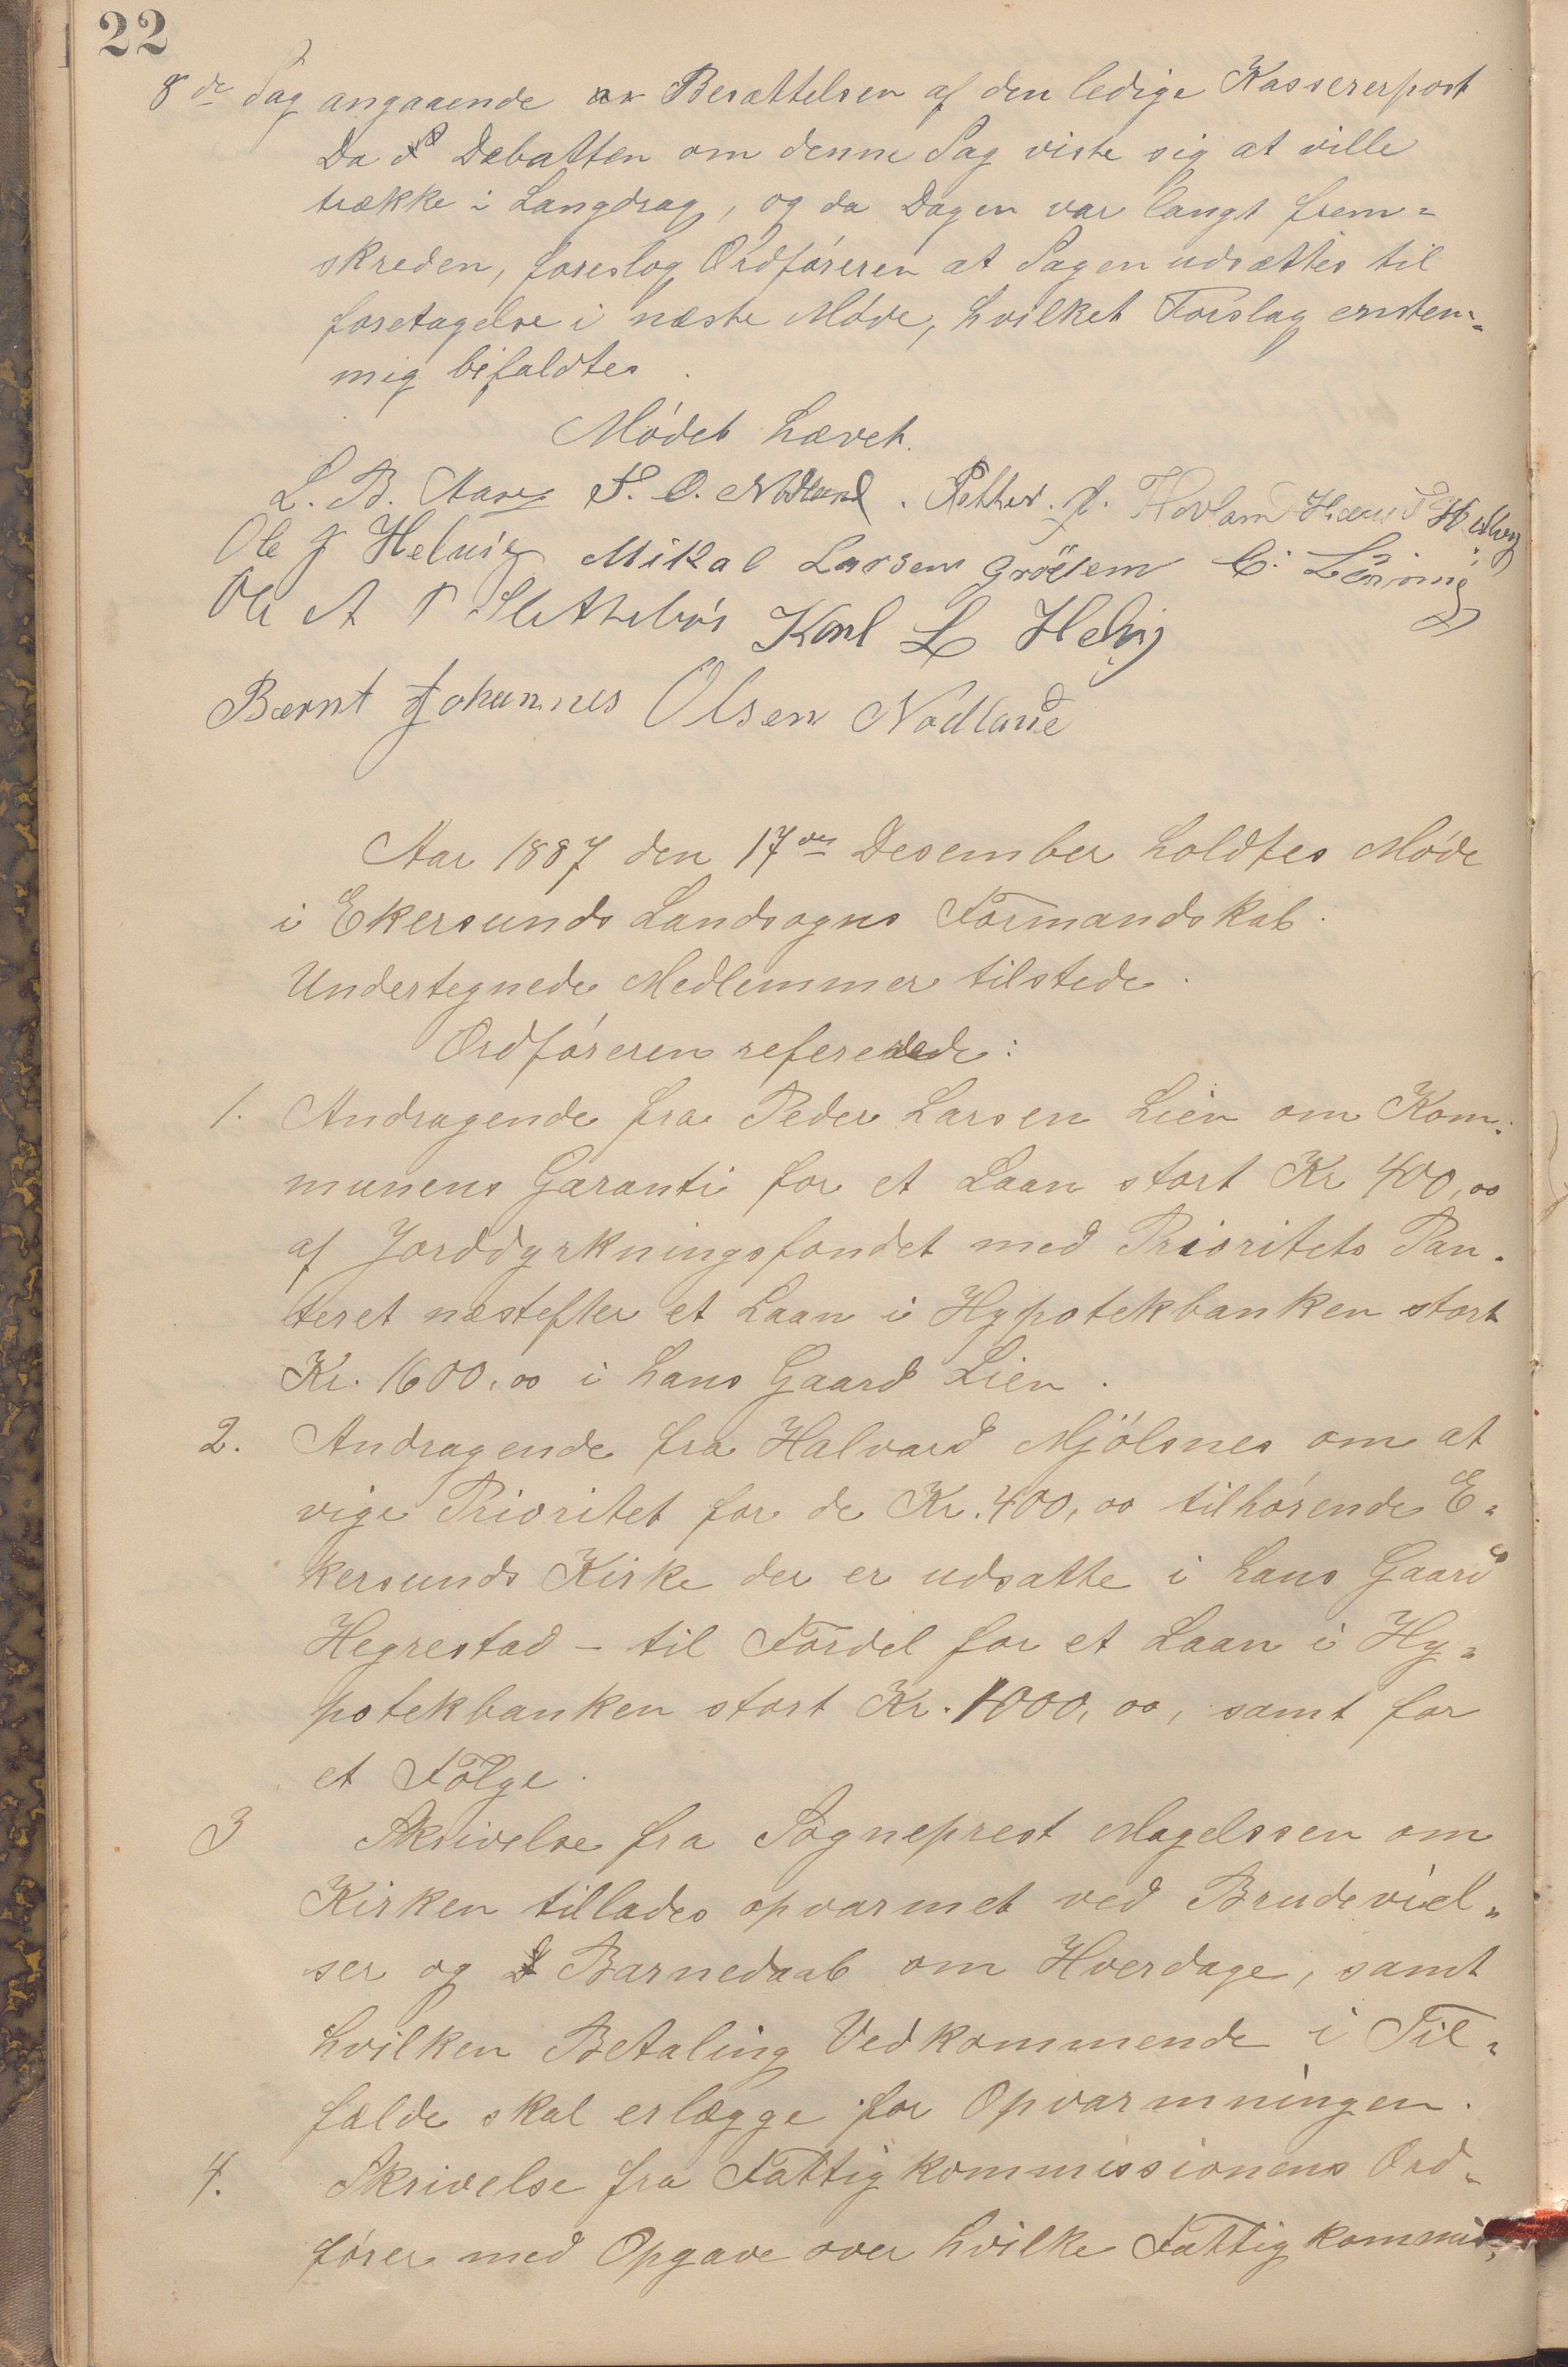 22
8de Sag angaaende Besættelsen af den ledige Kassererpost
Da Debatten om denne Sag viste sig at ville
trække i Langdrag, og da Dagen var langt frem=
skreden, foreslog Ordføreren at Sagen udsættes til
foretagelse i næste Møde, hvilket Forslag enstem=
mig bifaldtes.
Mödet hævet.
L. B. Aase O. Nodland. Petter. Hovland
Ole J Helvig Mikal Larsen Grödem
Ole A Slettebös Karl L Helvig
Bærnt Johannes Olsen Nodland
Aar 1887 den 17de Desember holdtes Møde
i Ekersunds Landsogns Formandskab.
Undertegnede Medlemmer tilstede.
Ordføreren refererede:
1. Andragende fra Peder Larsen Lien om Kom=
munens Garanti for et Laan stort Kr 400,00
af Jorddyrkningsfondet med Prioritets Pan=
teret næstefter et Laan i Hypotekbanken stort
Kr. 1600,00 i hans Gaard Lien.
2. Andragende fra Halvard Mjölsnes om at
vige Prioritet for de Kr. 400,00 tilhørende E=
kersunds Kirke der er udsatte i hans Gaard
Hegrestad - til Fordel for et Laan i Hy=
potekbanken stort Kr. 1000,00, samt for
et Følge.
3 Skrivelse fra Sogneprest Magelssen om
Kirken tillades opvarmet ved Brudeviel=
ser og Barnedaab om Hverdage, samt
hvilken Betaling Vedkommende i Til=
fælde skal erlægge for Opvarmningen.
4. Skrivelse fra Fattigkommissionens Ord=
fører med Opgave over hvilke Fattigkommis=